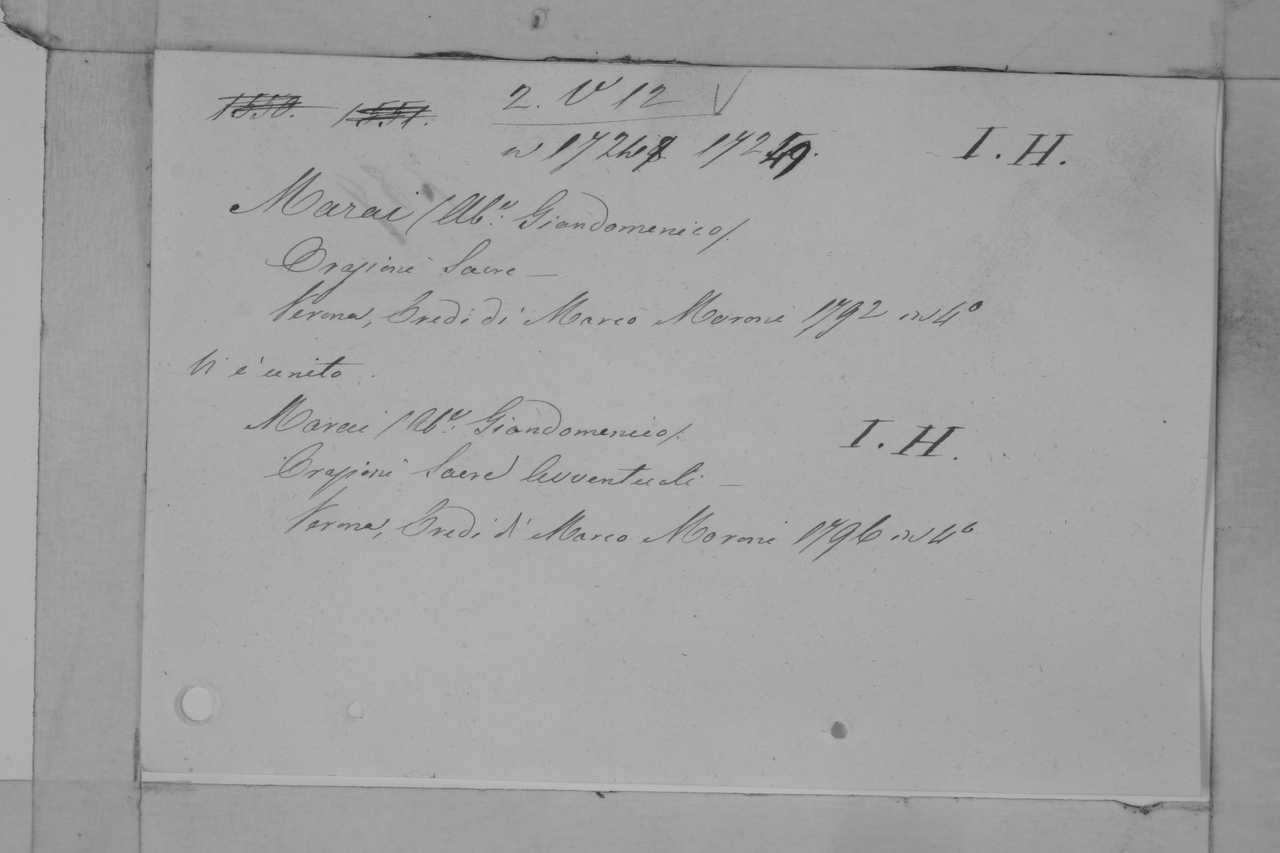 1550. 1551. 2. V 12
17248 17249. I. H.
Marai (Ab.e Giandomenico).
Orazioni Sacre —
Verona, Eredi di Marco Moroni 1792 in 4°
Vi è unito.
Marai (Ab.e Giandomenico). I. H.
Orazioni Sacre Avventuali —
Verona, Eredi di Marco Moroni 1796 in 4°